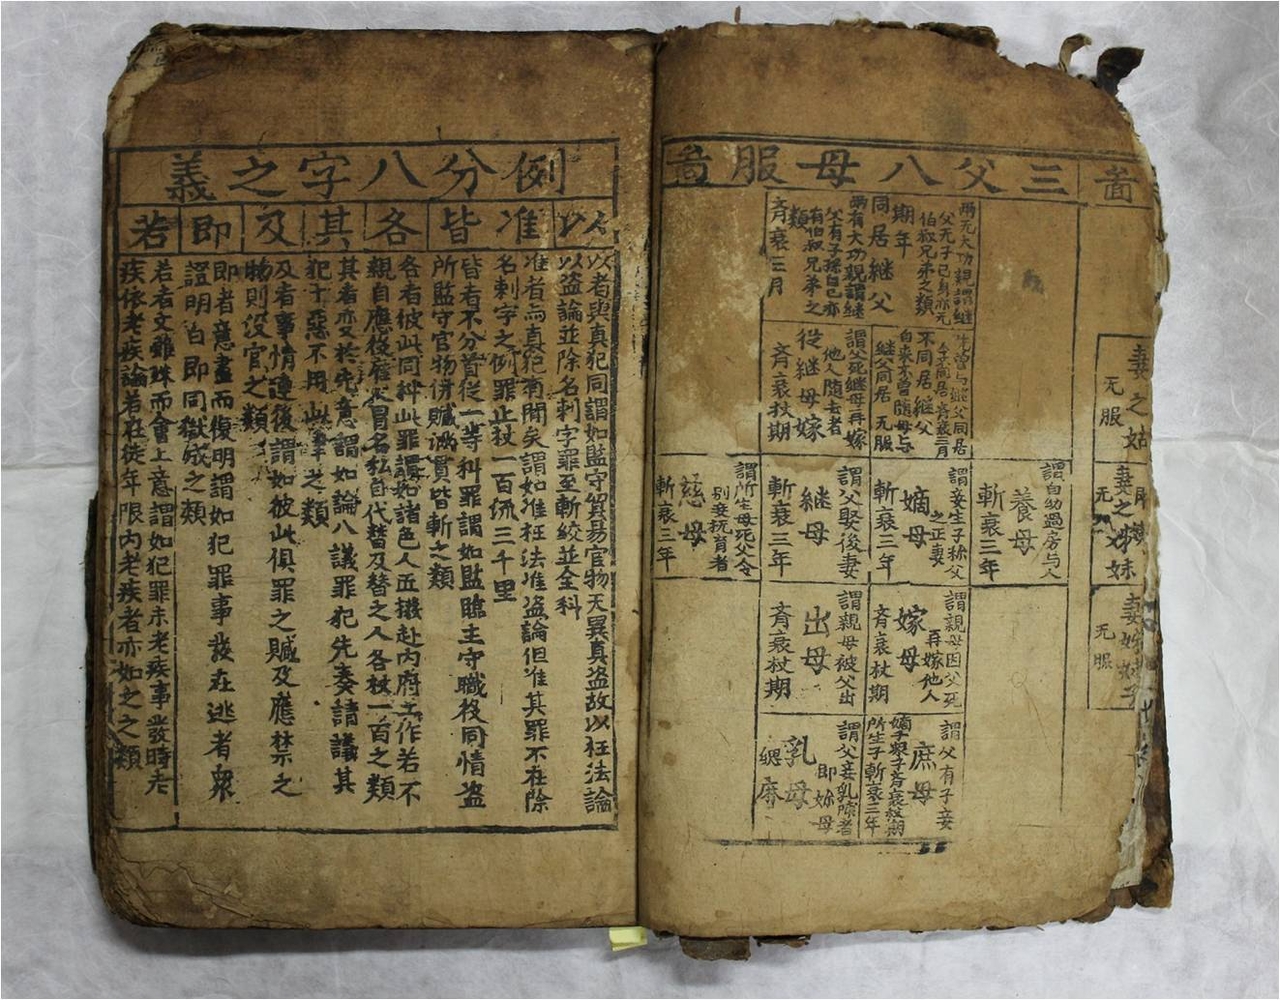 啚
三父八母服啚
妻之姑
无服
妻之姊妹
无服
无服
兩无大功親謂継
父无子已身亦无
伯叔兄弟之類
期年
同居継父
兩有大功親謂継
父有子孫自已亦
有伯叔兄弟之
類
斉衰三月
不同居継父
自来不曾随母与
継父同居 无服
謂父死継母再嫁
他人随去者
從継母嫁
斉衰杖期
謂自幼過房与人
養母
斬衰三年
謂妾生子称父
之正妻
嫡母
斬衰三年
謂父娶後妻
継母
斬衰三年
謂所生母死父令
别妾抚育者
慈母
斬衰三年
謂親母因父死
再嫁他人
嫁母
斉衰杖期
謂親母被父出
出母
斉衰杖期
謂父有子妾
庶母
嫡子衆子斉衰杖期
所生子斬衰三年
謂父妾乳哺者
即妳母
乳母
緦麻
例分八字之義
以 准 皆 各 其 及 即 若
以者與真犯同謂如監守貿易官物无異真盗故以枉法論
以盗論並除名刺字罪至斬絞並全科
准者与真犯有間矣謂如准枉法准盗論但准其罪不在除
名刺字之例罪止杖一百流三千里
皆者不分首從一等科罪謂如監臨主守職役同情盗
所監守官物併贓满貫皆斬之類
各者彼此同科此罪謂如諸色人匠撥赴内府工作若不
親自應役雇人冒名私自代替及替之人各杖一百之類
其者变於先意謂如論八議罪犯先奏請議其
犯十惡不用此律之類
及者事情連後謂如彼此俱罪之贓及應禁之
物則没官之類
即者意盡而復明謂如犯罪事發在逃者衆
證明白即同獄成之類
若者文雖殊而會上意謂如犯罪未老疾事發時老
疾依老疾論若在徒年限内老疾者亦如之之類